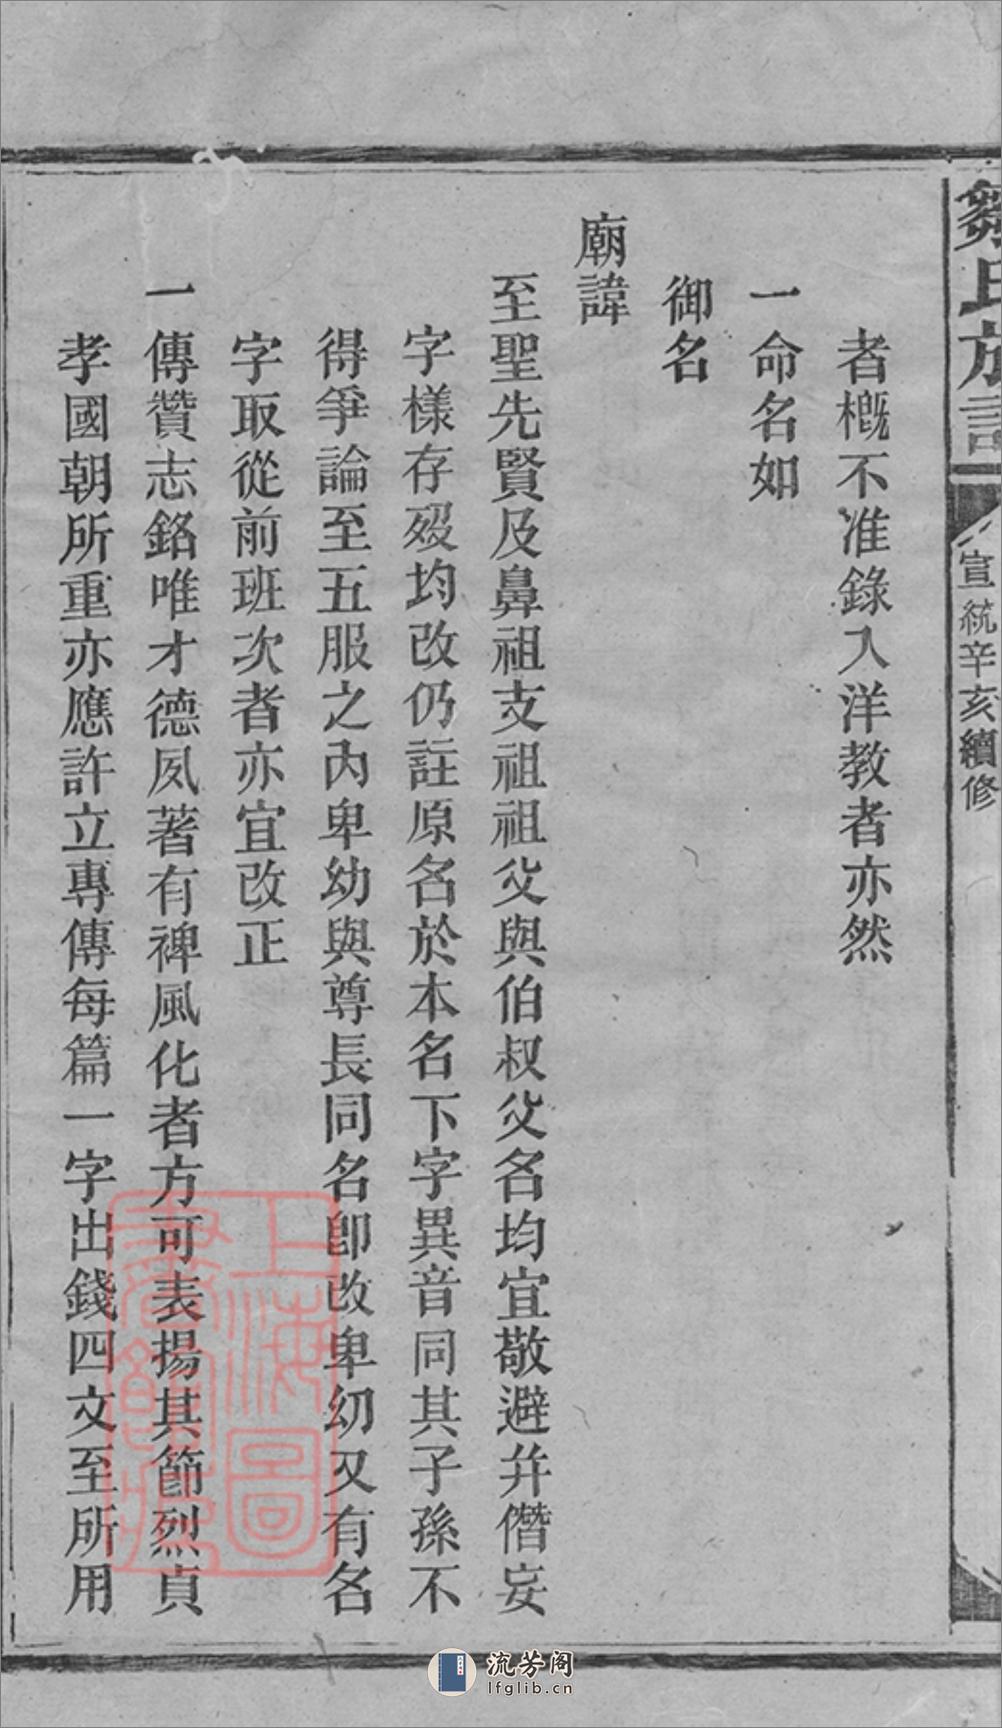 鄒氏族譜
宣統辛亥續修
者槪不准錄入洋教者亦然
一命名如
御名
廟諱
至聖先賢及鼻祖支祖祖父與伯叔父名均宜敬避并僭妄
字樣存歿均改仍註原名於本名下字異音同其子孫不
得爭論至五服之內卑幼與尊長同名卽改卑幼又有名
字取從前班次者亦宜改正
一傳贊志銘唯才德夙著有裨風化者方可表揚其節烈貞
孝國朝所重亦應許立專傳每篇一字出錢四文至所用
上海圖書館藏
流芳阁
lfglib.cn